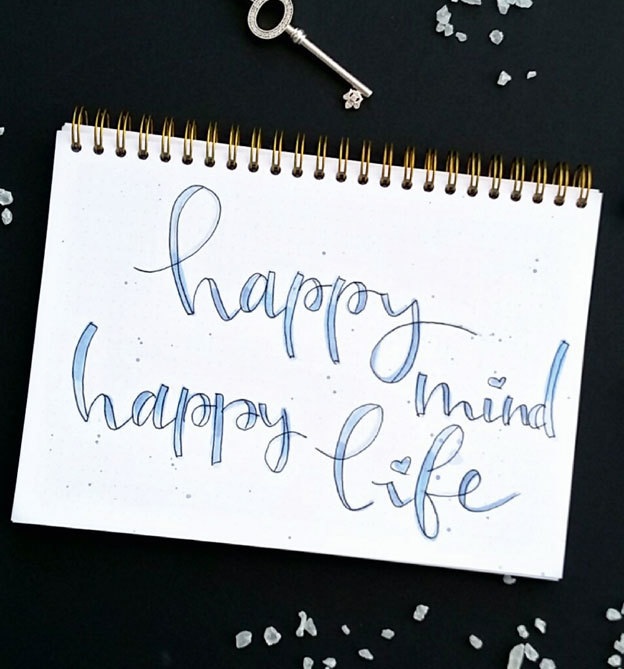 happy
mind
happy
life